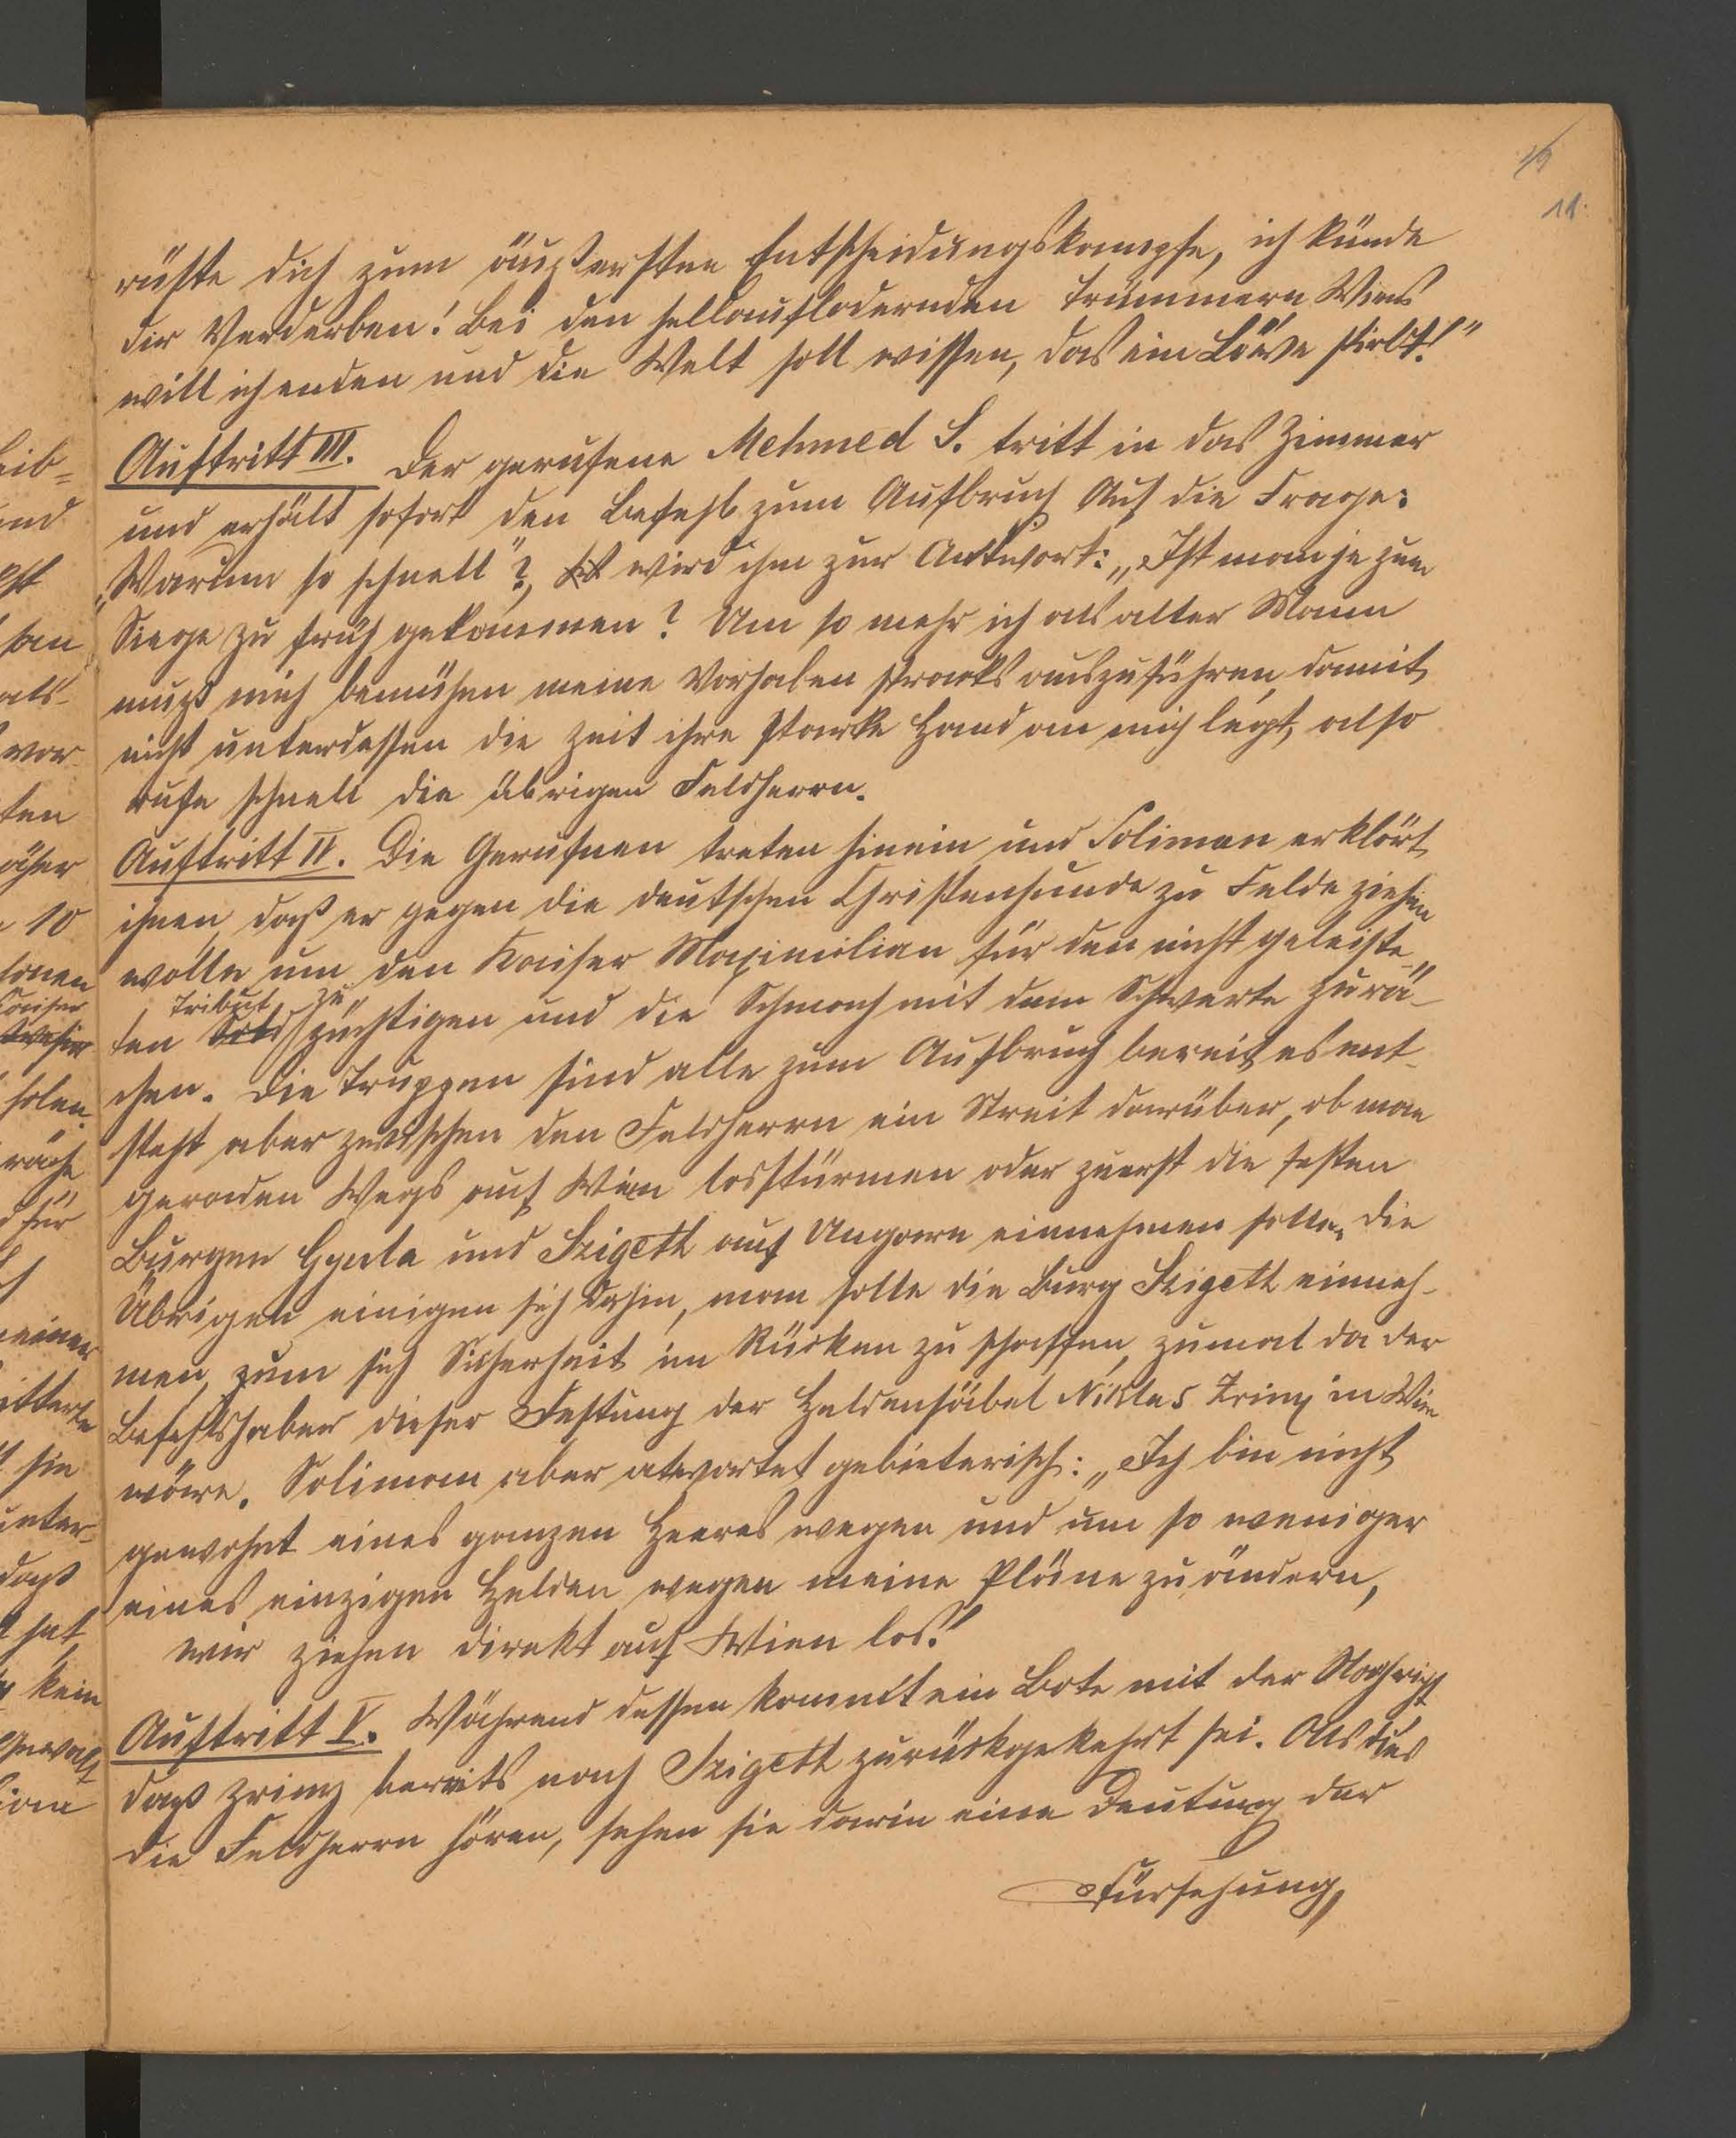 11.
rüste dich zum äußersten Entscheidungskampfe, ich künde
dir Verderben! Bei den hellauflodernden Trümmern Wiens
will ich enden und die Welt soll wissen, das ein Löwe stirbt!"
Auftritt III. Der gerufene Mehmed S. tritt in das Zimmer
und erhält sofort den Befehl zum Aufbruch Auf die Frage:
„Warum so schnell"? wird ihm zur Antwort: „Ist man je zum
Siege zu früh gekommen? Um so mehr ich als alter Mann
muß mich bemühen meine Vorhaben stracks auszuführen, damit
nicht unterdessen die Zeit ihre starke Hand an mich legt, also
rufe schnell die übrigen Feldherrn.
Auftritt IV. Die Gerufnen treten hinein und Soliman erklärt
ihnen, daß er gegen die deutschen Christenhunde zu Felde ziehen
wolle um den Kaiser Maximilian für den nicht geleiste-
ten Tribut zu züchtigen und die Schmach mit dem Schwerte zu rä-
chen. Die Truppen sind alle zum Aufbruch bereit, es ent-
steht aber zwischen den Feldherrn ein Streit darüber, ob man
geraden Wegs auf Wien losstürmen oder zuerst die festen
Burgen Gyula und Szigeth auf Ungarn einnehmen solle. Die
Übrigen einigen sich dahin, man solle die Burg Szigeth einneh-
men, zum sich Sicherheit im Rücken zu schaffen, zumal da der
Befehlshaber dieser Festung der Heldensäbel Niklas Zriny in Wien
wäre. Soliman aber atwortet gebieterisch: „Ich bin nicht
gewohnt eines ganzen Heeres wegen und um so weniger
eines einzigen Helden wegen meine Pläne zu ändern,
wir ziehen direkt auf Wien los!
Auftritt V. Während dessen kommt ein Bote mit der Nachricht
daß Zriny bereits nach Szigeth zurückgekehrt sei. Als dies
die Feldherrn hören, sehen sie darin eine Deutung der
Fürsehung,